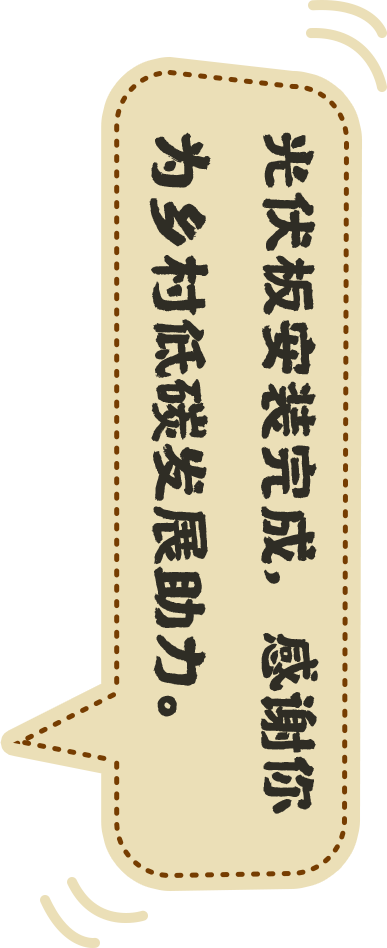 光伏板安装完成，感谢你
为乡村低碳发展助力。